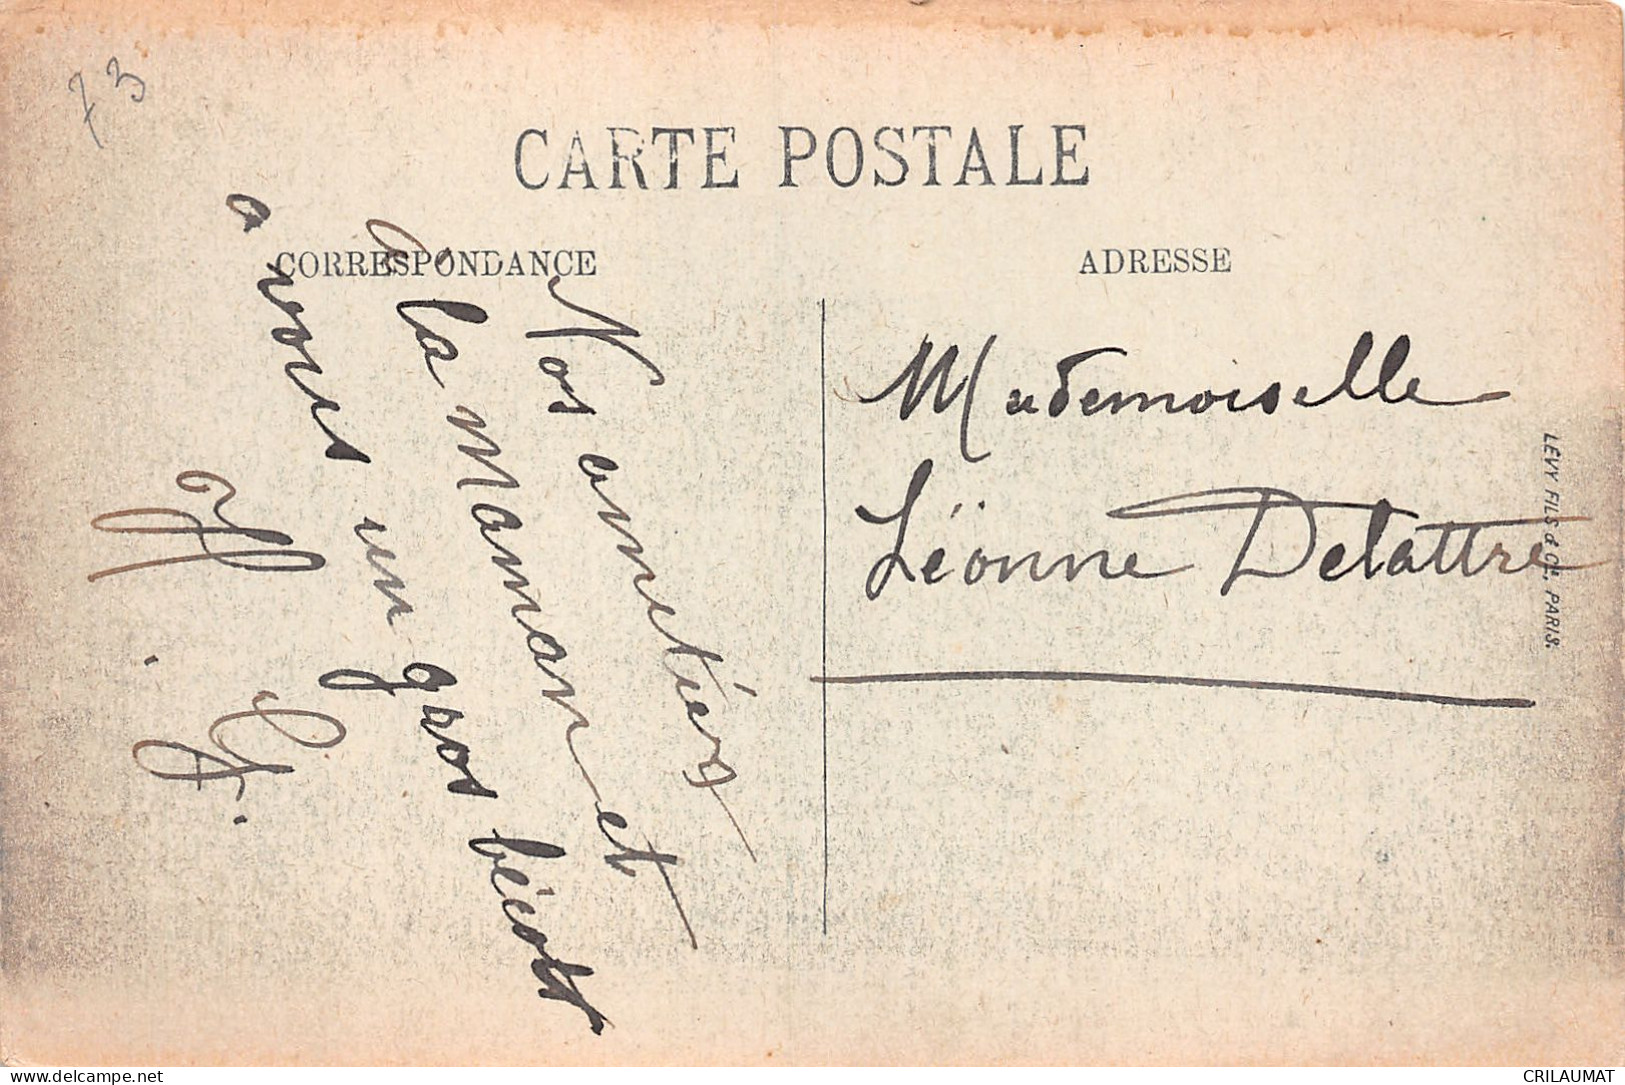 73
CARTE POSTALE
CORRESPONDANCE
Nos amitiés
a la maman et
a vous un gros bécot
ADRESSE
Mademoiselle
Léonne Delattre
LEVY FILS & Cie, PARIS.
delcampe.net
CRILAUMAT